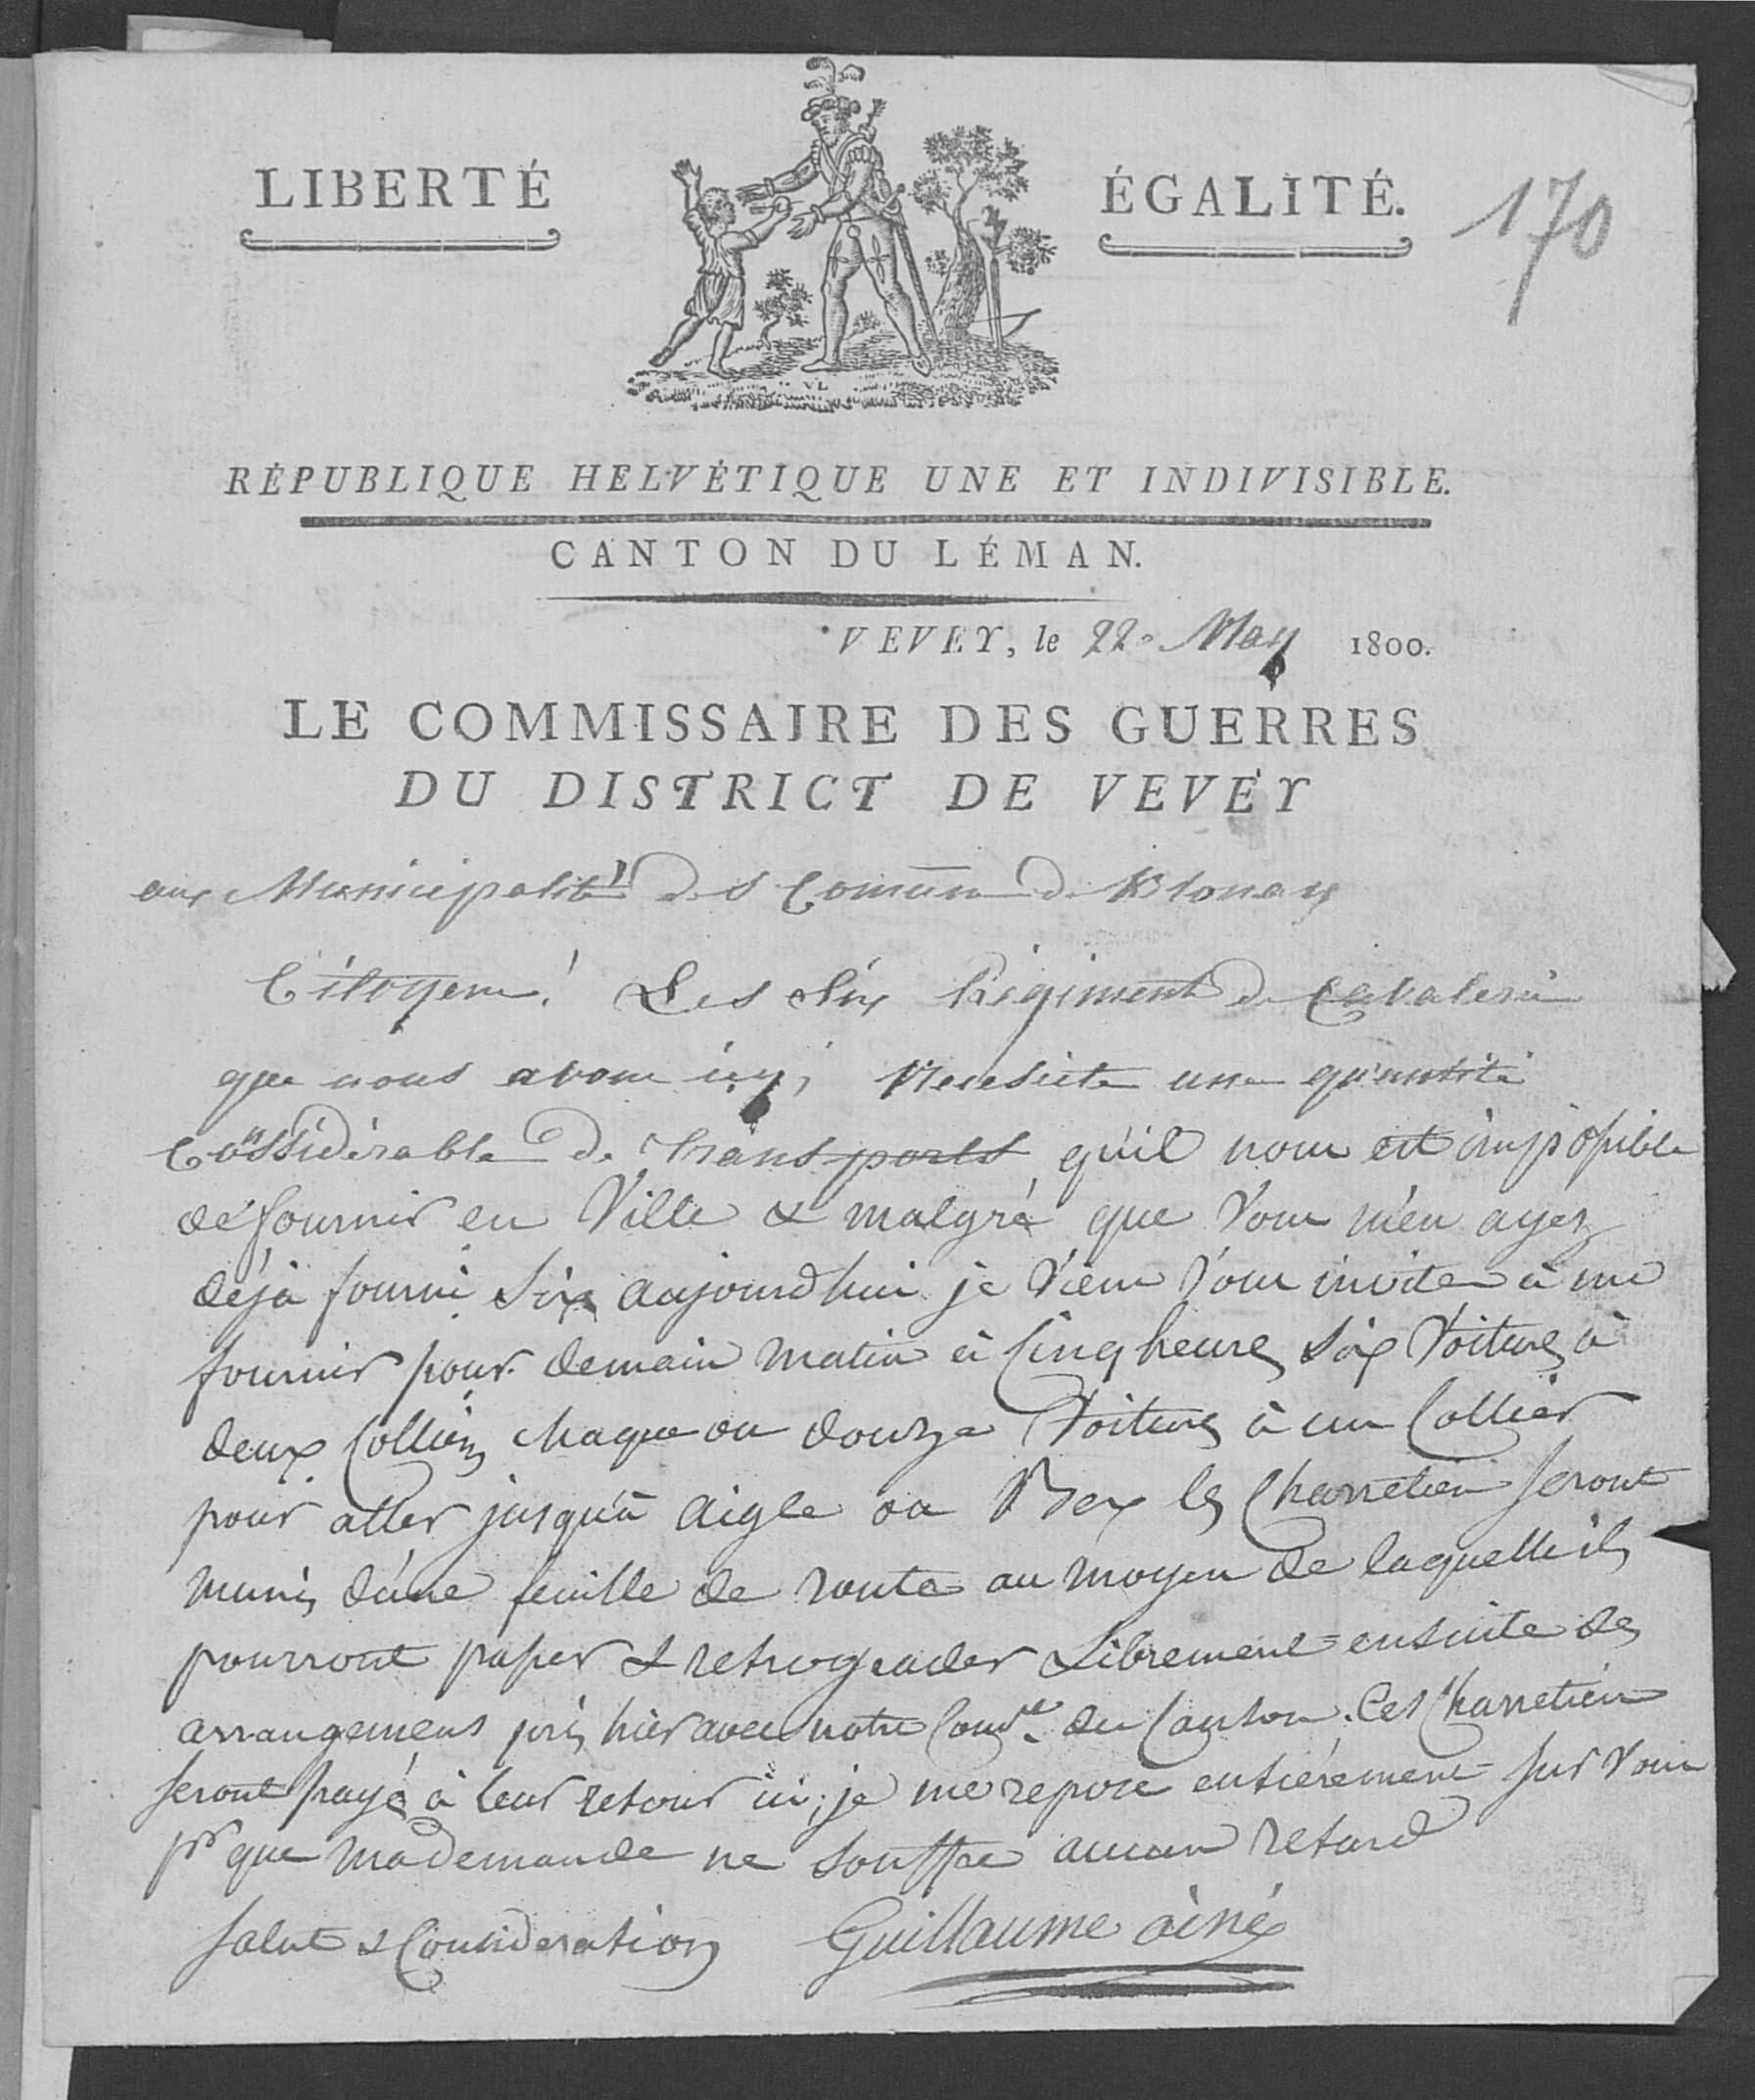 LIBERTÉ
ÉGALITÉ.
170
VL
RÉPUBLIQUE HELVÉTIQUE UNE ET INDIVISIBLE.
CANTON DU LÉMAN.
VEVEY, le 22e May 1800.
LE COMMISSAIRE DES GUERRES
DU DISTRICT DE VEVEY
aux Municipalités des Comune de Blonay
Citoyens! Les Six Régiments de Cavalerie
que nous avons icy, Necesite une quantité
Cossidérable de transports qu'il nous est impossible
de fournir en Ville & malgré que Vous m'en ayez
déjà fourni Six aujourdhui je viens Vous inviter à me
fournir pour demain matin à Cinq heures Six Voitures à
deux Colliers chaque ou douze Voitures à un Collier
pour aller jusqu'à aigle ou Bex les Charretiers seront
munis d'une feuille de route au moyen de laquelle ils
pourront passer & retrograder Librement ensuite des
arrangemens pris hier avec notre Comre du Canton. Ces Charretiers
seront payé à leur retour ici; je me repose entiérement sur Vous
pr que ma demande ne souffre aucun retard
Salut & Consideration Guillaume ainé